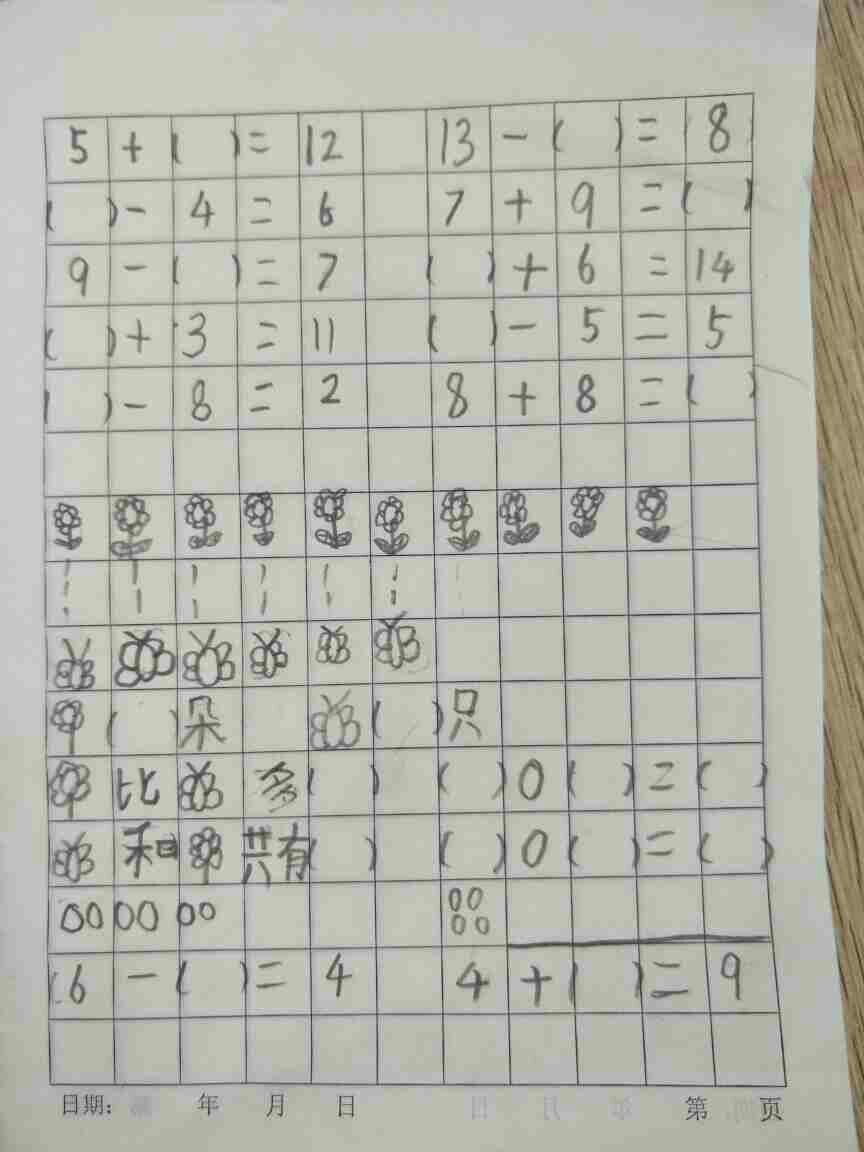 5 + ( ) = 12 13 - ( ) = 8
( ) - 4 = 6 7 + 9 = ( )
9 - ( ) = 7 ( ) + 6 = 14
( ) + 3 = 11 ( ) - 5 = 5
( ) - 8 = 2 8 + 8 = ( )
( ) 朵 ( ) 只
比 多 ( ) ( ) ○ ( ) = ( )
和 共有 ( ) ( ) ○ ( ) = ( )
6 - ( ) = 4 4 + ( ) = 9
日期: 年 月 日 第 页